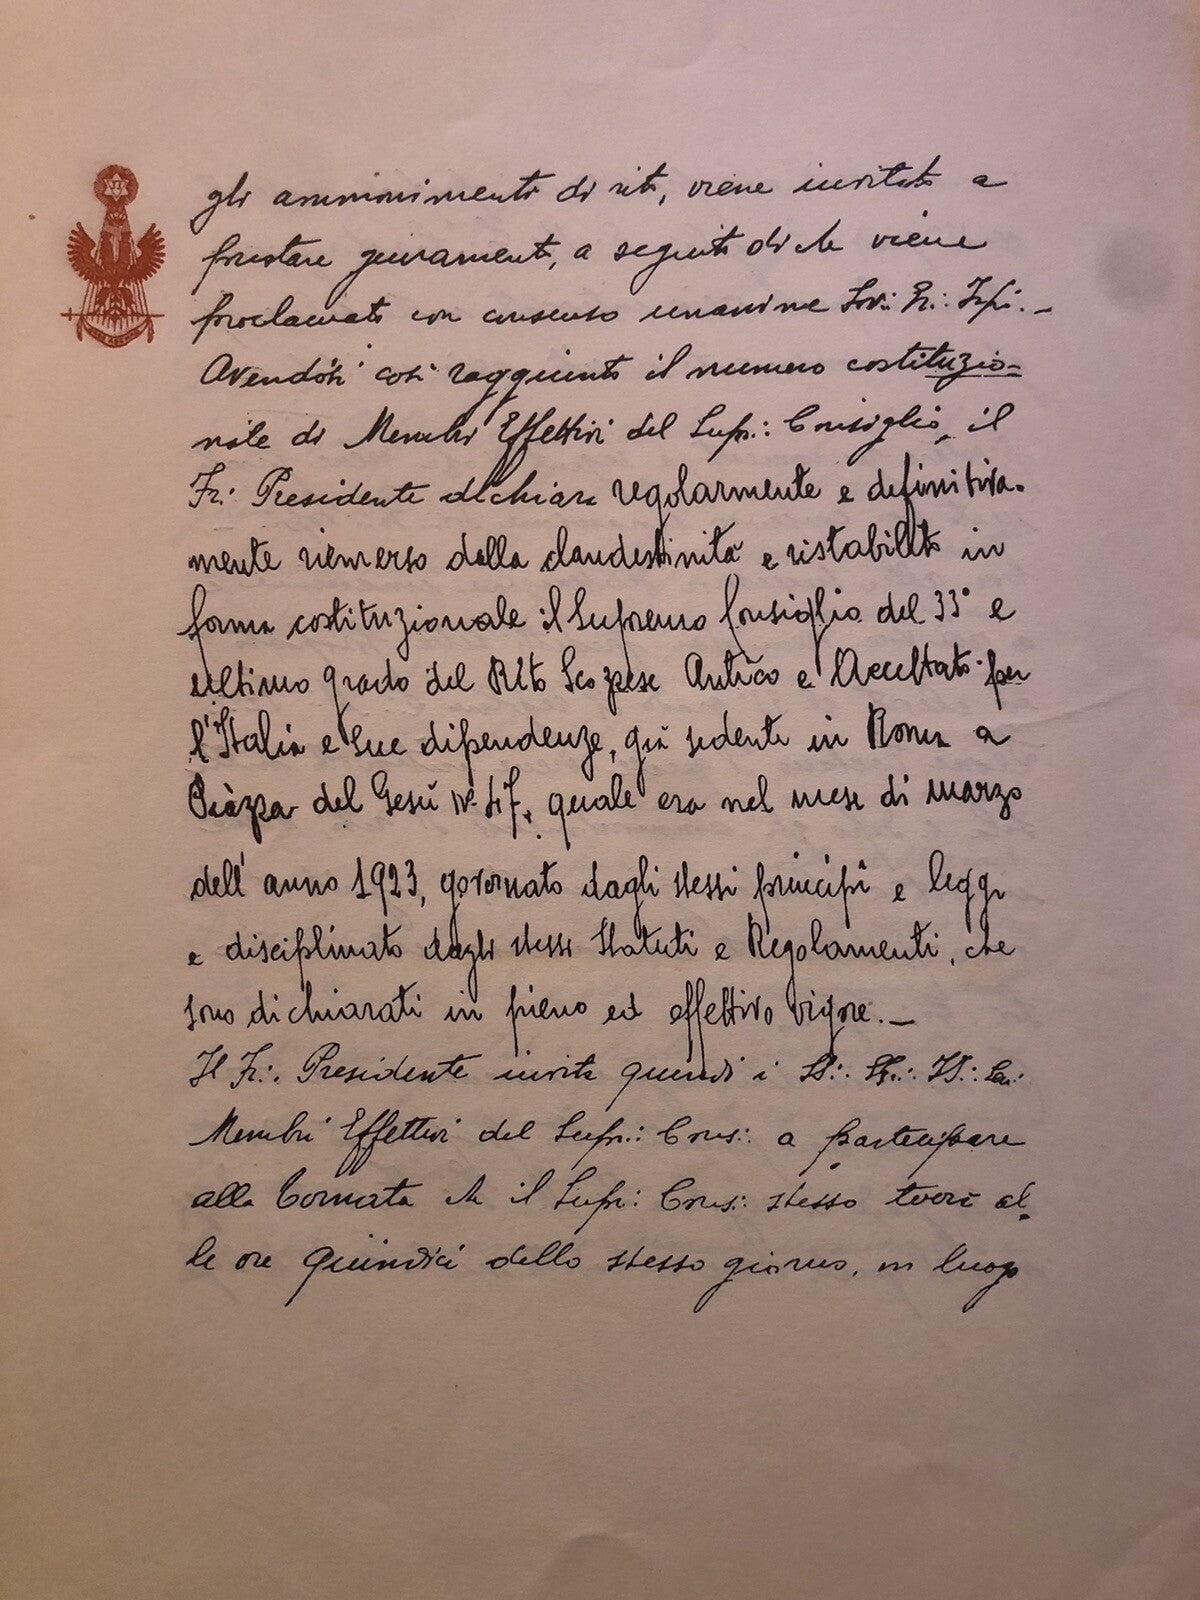 gli ammonimenti di rito, viene invitato a
prestare giuramento, a seguito di che viene
proclamato con consenso unanime Sov∴ Gr∴ Isp∴ -
Avendosi così raggiunto il numero costituzio=
nale di Membri Effettivi del Sup∴ Consiglio, il
Fr∴ Presidente dichiara regolarmente e definitiva-
mente riemerso dalla clandestinità e ristabilito in
forma costituzionale il Supremo Consiglio del 33° e
ultimo grado del Rito Scozzese Antico e Accettato per
l'Italia e sue dipendenze, già sedente in Roma a
Piazza del Gesù N. 47, quale era nel mese di marzo
dell'anno 1923, governato dagli stessi principi e leggi
e disciplinato dagli stessi Statuti e Regolamenti, che
sono dichiarati in pieno ed effettivo vigore. —
Il Fr∴ Presidente invita quindi i
Membri Effettivi del Sup∴ Cons∴ a partecipare
alla Tornata che il Sup∴ Cons∴ stesso terrà al-
le ore quindici dello stesso giorno, in luogo